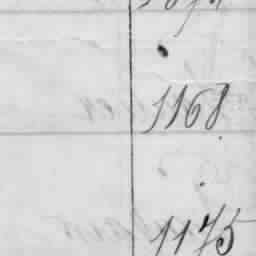 1168
1175